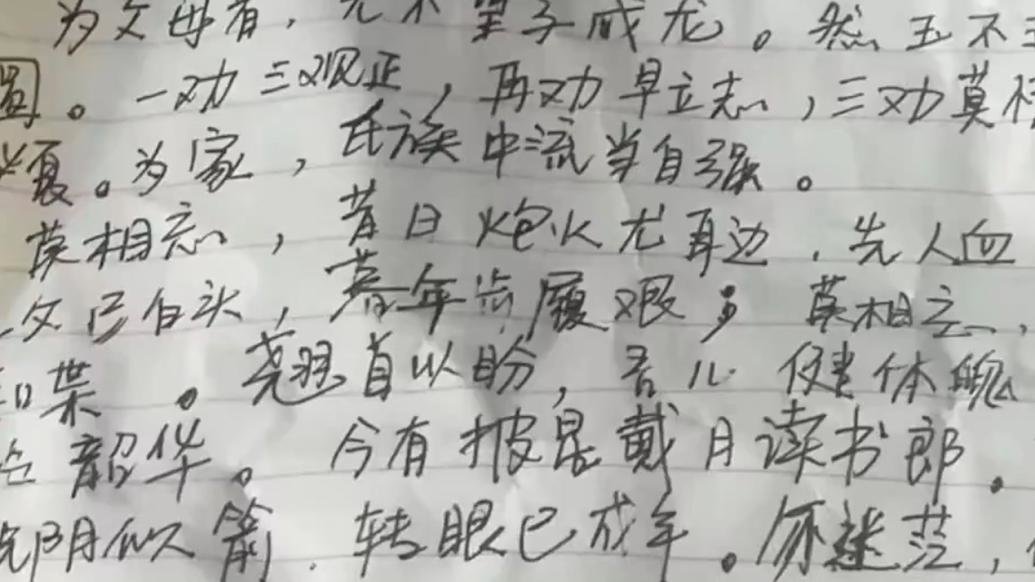 为父母者，尤不望子成龙。然玉不
。一劝三观正，再劝早立志，三劝莫
夏。为家，氏族中流当自强。
莫相忘，昔日炮火尤耳边，先人血
父已白头，暮年步履艰；莫相忘，
和业。翘首以盼，吾儿健体魄
韶华。今有披星戴月读书郎。
光阴似箭，转眼已成年。你迷茫，